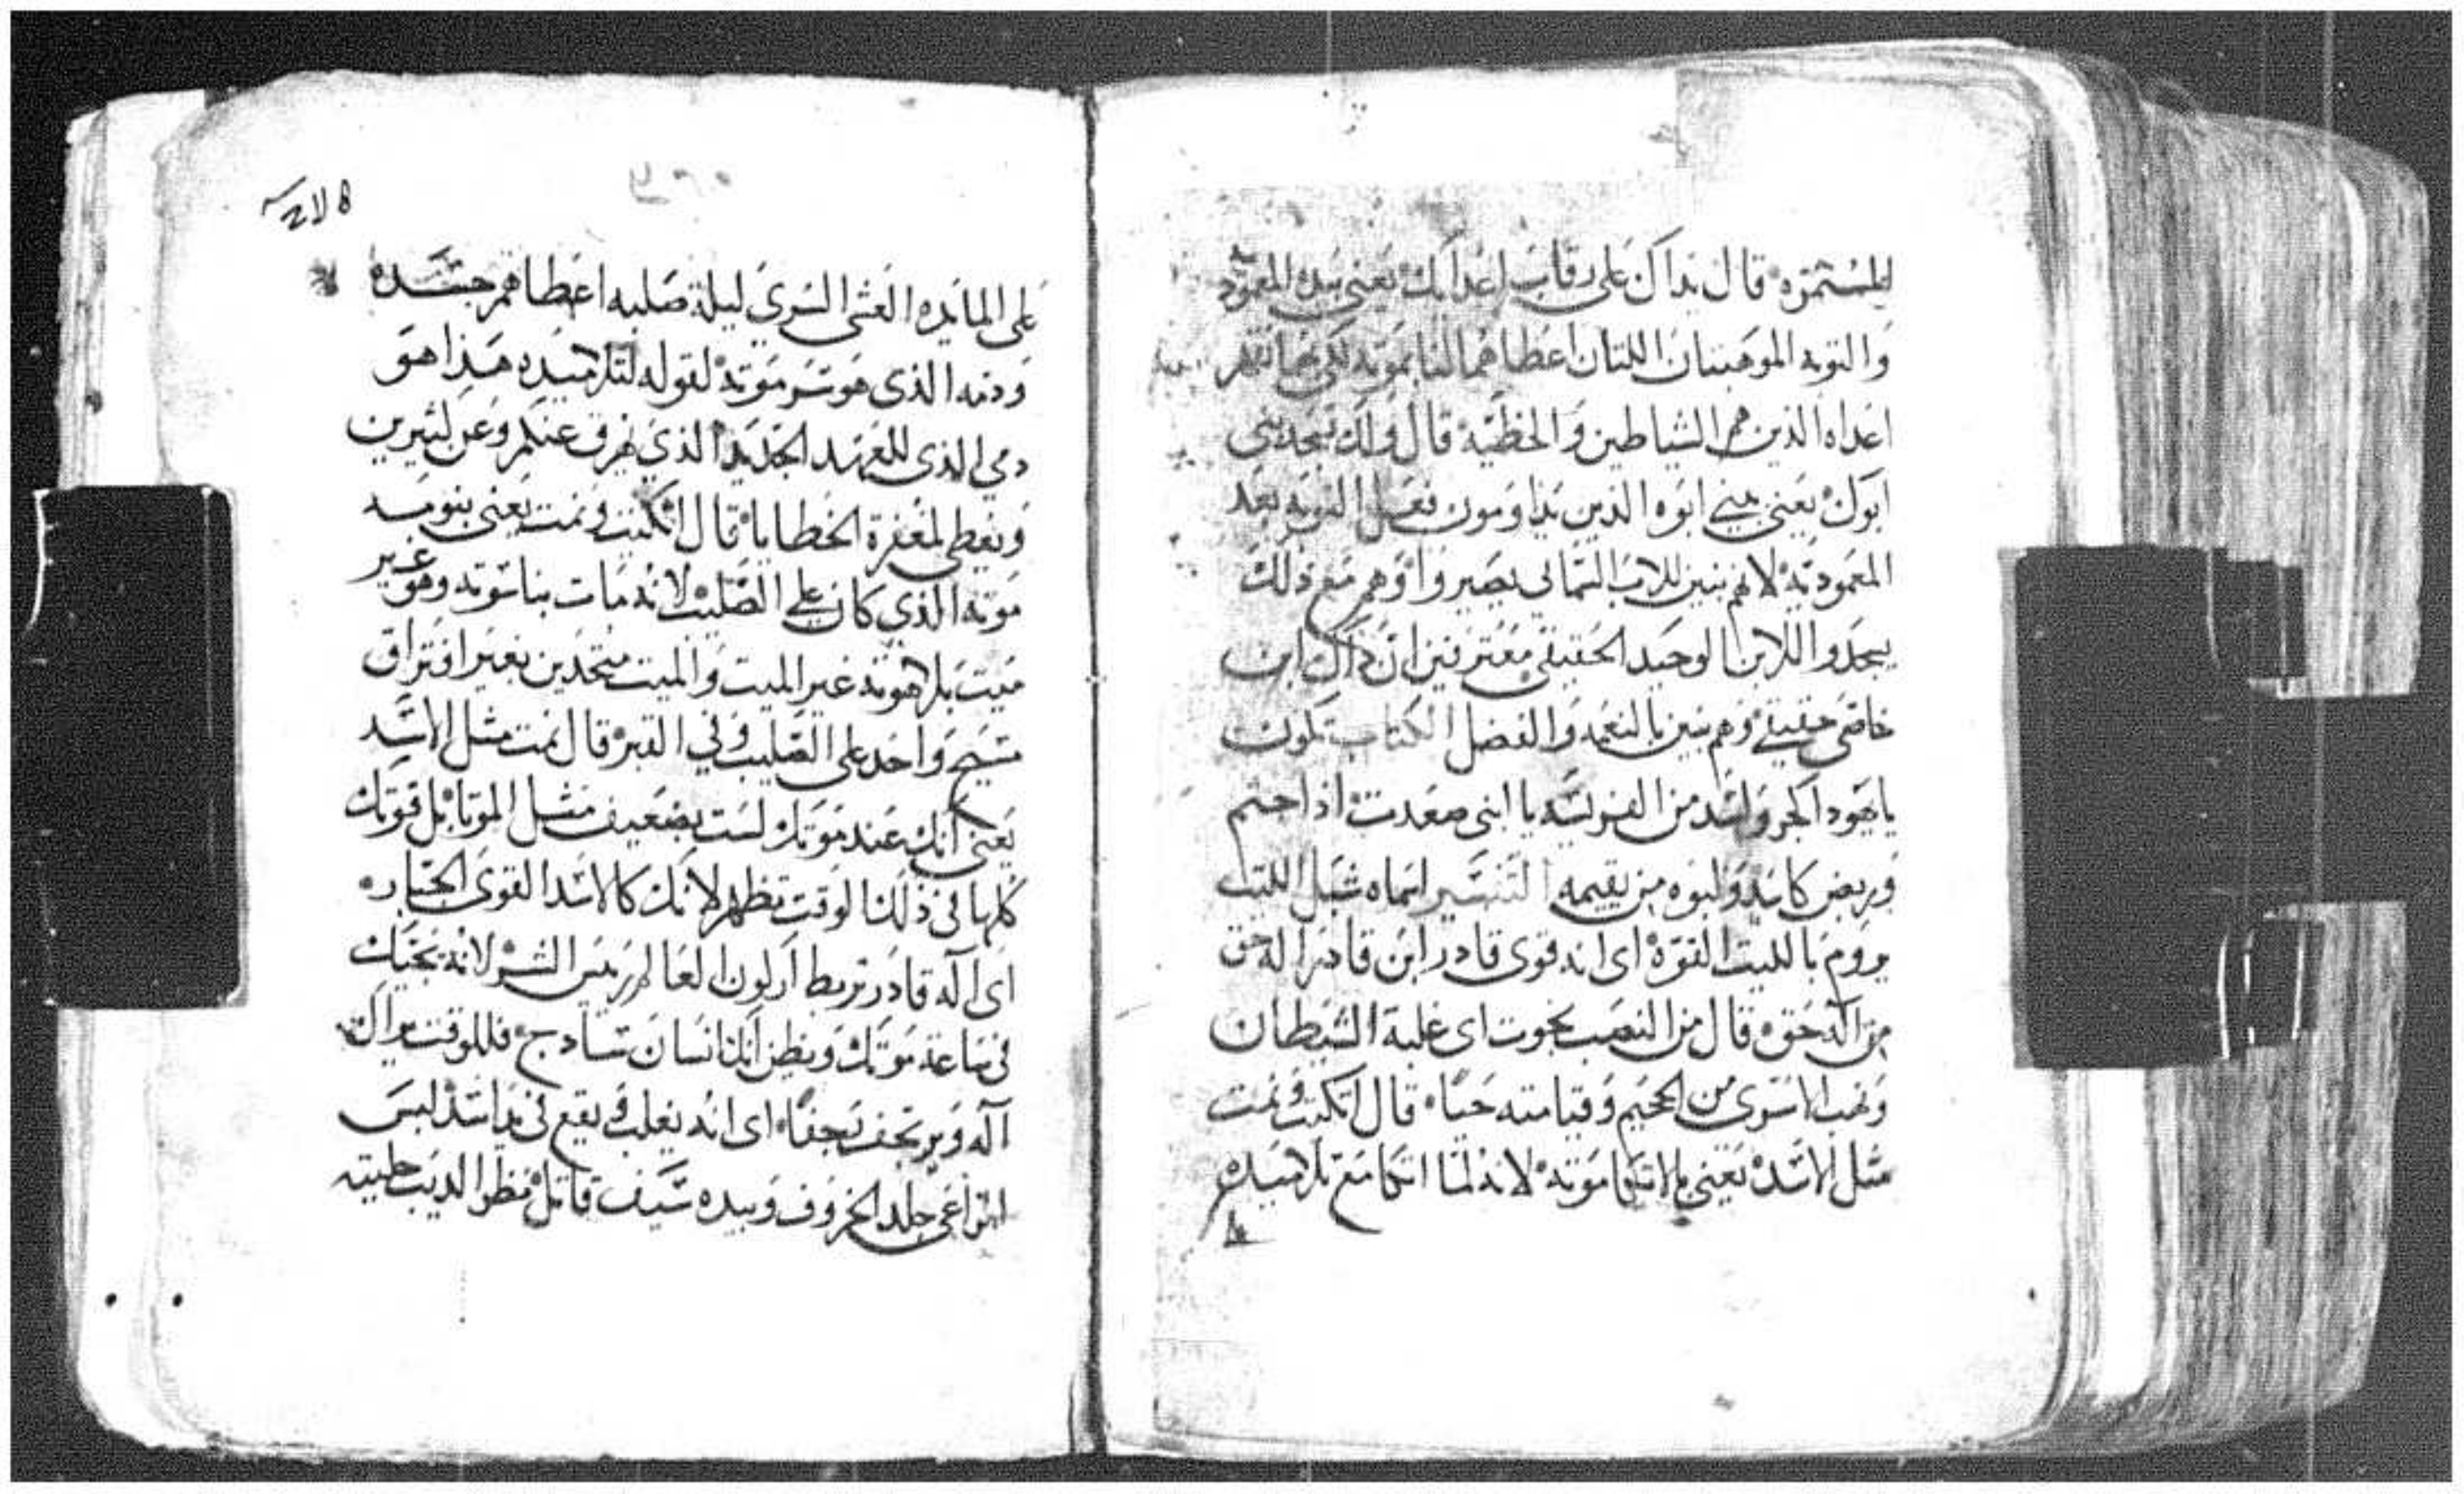 المستمره قال يداك على رقاب اعدايك يعني بيده المعموديه
والتوبه الموهبتان اللتان اعطاهما لنا بموته لكي بهما نقهر
اعداه الذين هم الشياطين والخطيه قال ولك تسجد بني
ابوك يعني بيني ابوه الذين يداومون فعل التوبه بعد
المعموديه لانهم بنين للاب السماني يصيروا وهم مع ذلك
يسجدوا للابن الوحيد الحقيقي معترفين ان ذاك ابن
خاصي حقيقي وهم بنين بالنعمه والفضل الكتاب تكون
يا يهودا كجرو اسد من الفريسه يا ابني صعدت اذا جثم
وربض كاسد ولبوه من يقيمه التفسير اسماه شبل الليث
يروم بالليث القوه اي انه قوي قادر ابن قادر اله حق
من اله حق قال من النصب نجوت اي غلبة الشيطان
ونهب الاسرى من الجحيم وقيامته حيا قال اتكيت ونمت
مثل الاسد يعني بالاتكا موته لانه لما اتكا مع تلاميده
على المايده العشا السري ليلة صلبه اعطاهم جسده
ودمه الذي هو سر موته لقوله لتلاميده هذا هو
دمي الذي للعهد الجديد الذي يهرق عنكم وعن كثيرين
ويعطى لمغفرة الخطايا قال اتكيت ونمت يعني بنومه
موته الذي كان على الصليب لانه مات بناسوته وهو غير
ميت بلاهوته غير الميت والميت متحدين بغير افتراق
مسيح واحد على الصليب وفي القبر قال نمت مثل الاسد
يعني انك عند موتك لست بضعيف مثل الموتا بل قوتك
كلها في ذلك الوقت تظهر لانك كالاسد القوي الجبار
اي اله قادر تربط اركون العالم رييس الشر لانه نجيك
في ساعة موتك ويظن انك انسان سادج فللوقت يراك
اله ويرتجف نجفا اي انه يغلب في يقع في يد اسد لبس
الراعي جلد الخروف وبيده سيف قاتل نظر الديب حليته